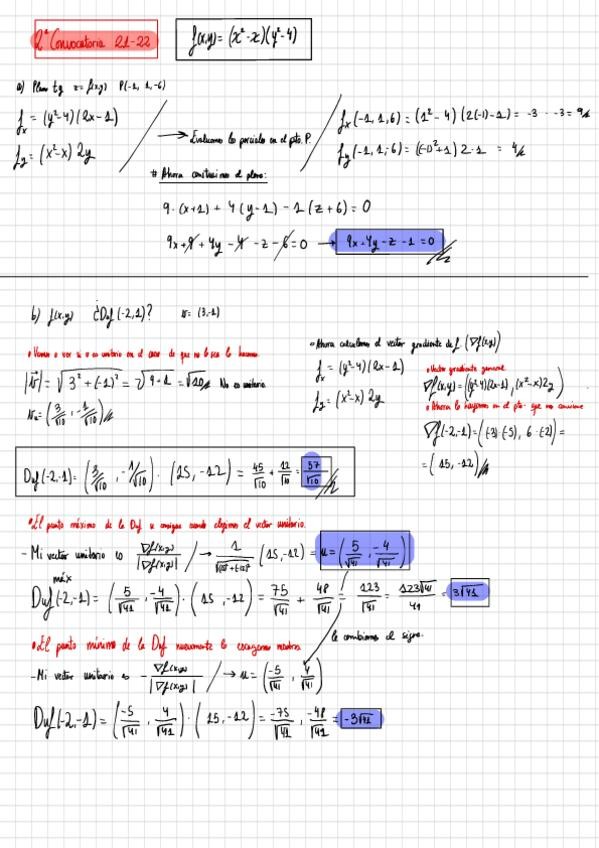 2ª Convocatoria 21-22
f(x,y) = (x²-x)(y²-4)
a) Plano tg z = f(x,y) P(-1, 1, -6)
fx = (y²-4)(2x-1)
fy = (x²-x) 2y
→ Evaluamos las parciales en el pto. P.
fx (-1, 1, 6) = (1²-4)(2(-1)-1) = -3 · -3 = 9
fy (-1, 1, -6) = ((-1)²+1) 2·1 = 4
# Ahora construimos el plano:
9·(x+1) + 4(y-1) - 1(z+6) = 0
9x+9+4y-4-z-6=0 → 9x+4y-z-1=0
b) f(x,y) ¿Duf(-2,1)? v = (3,-1)
• Vamos a ver si v es unitario en el caso de que no lo sea lo hacemos.
|v| = √3²+(-1)² = √9+1 = √10 No es unitario.
vu = (3/√10, -1/√10)
• Ahora calculamos el vector gradiente de f (∇f(x,y))
fx = (y²-4)(2x-1)
fy = (x²-x) 2y
• Vector gradiente general
∇f(x,y) = ((y²-4)(2x-1), (x²-x)2y)
• Ahora lo hacemos en el pto. que nos conviene
∇f(-2,-1) = ((-3)·(-5), 6·(-2)) =
= (15, -12)
Duf(-2,-1) = (3/√10, -1/√10) · (15, -12) = 45/√10 + 12/√10 = 57/√10
• El punto máximo de la Duf se consigue cuando elegimos el vector unitario.
- Mi vector unitario es ∇f(x,y)/|∇f(x,y)| → 1/√(15)²+(-12)² (15, -12) = u = (5/√41, -4/√41)
Duf máx (-2,-1) = (5/√41, -4/√41) · (15, -12) = 75/√41 + 48/√41 = 123/√41 = 123√41/41 = 3√41
le cambiamos el signo.
• El punto mínimo de la Duf nuevamente lo escogemos nosotros
- Mi vector unitario es -∇f(x,y)/|∇f(x,y)| → u = (-5/√41, 4/√41)
Duf(-2,-1) = (-5/√41, 4/√41) · (15, -12) = -75/√41, -48/√41 = -3√41